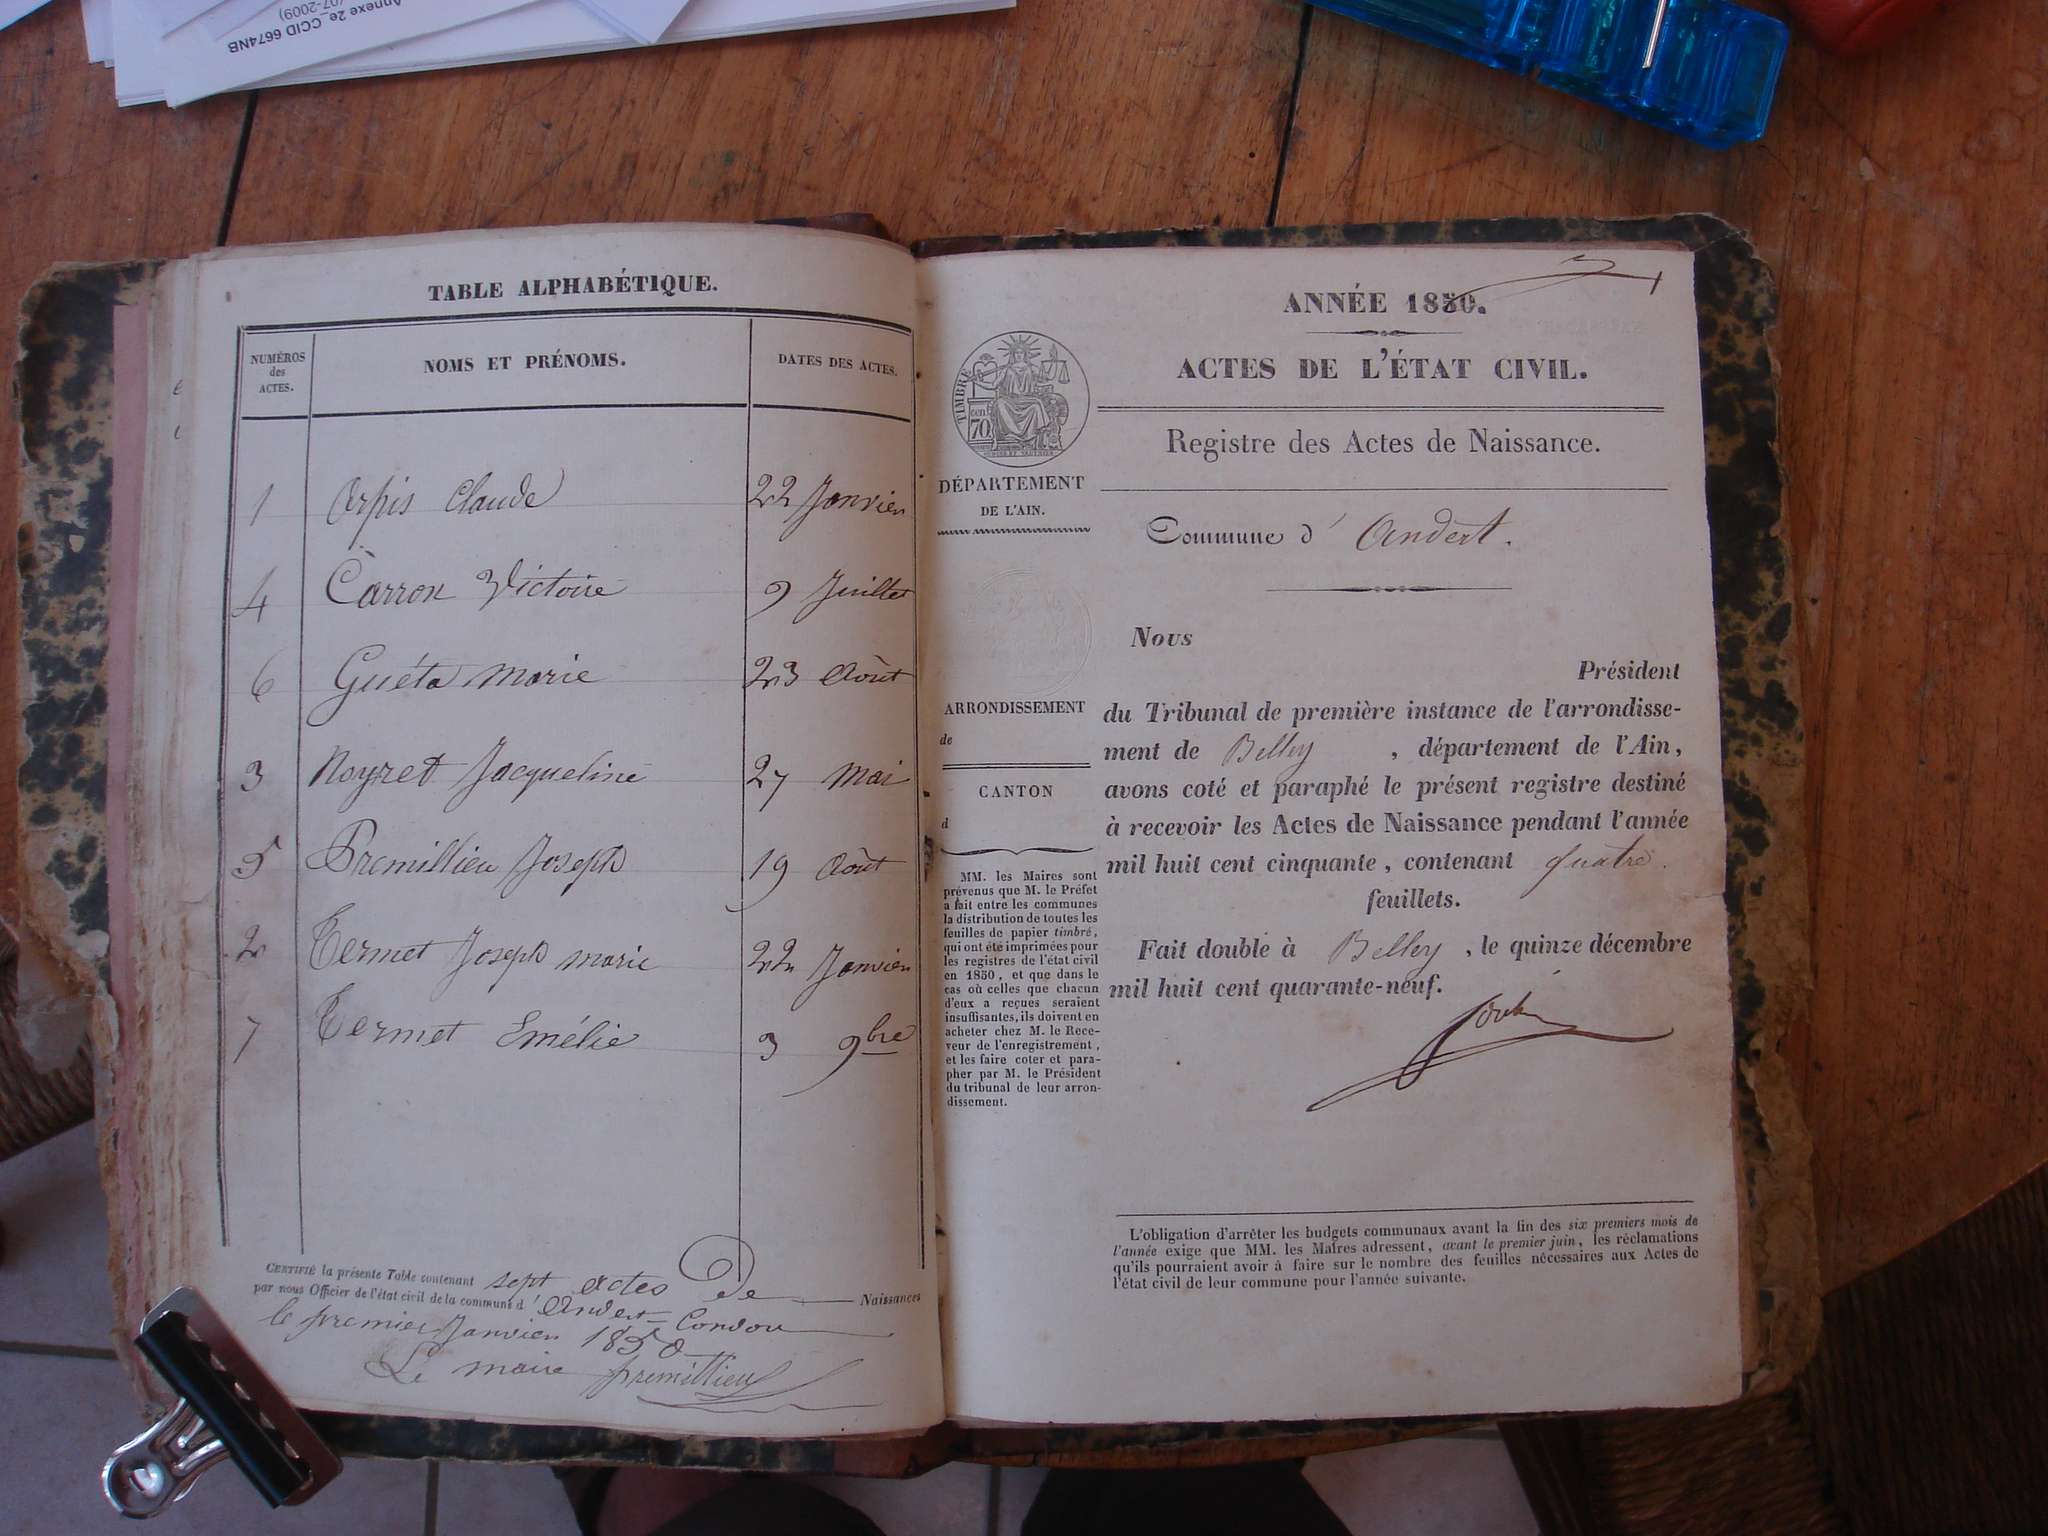 Annexe 2e. CCID 6674NB
07-2009)
TABLE ALPHABÉTIQUE.
NUMÉROS des ACTES.
NOMS ET PRÉNOMS.
DATES DES ACTES.
1 Orpis Claude 22 Janvier
4 Carron Victoire 9 Juillet
6 Guéta Marie 23 Août
3 Noyret Jacqueline 27 Mai
5 Premillieu Joseph 19 Août
2 Termet Joseph marie 22 Janvier
7 Termet Emélie 3 9bre
CERTIFIÉ la présente Table contenant sept actes De Naissances
par nous Officier de l'état civil de la commune d' Andert-Condon
le premier Janvier 1850
Le maire premillieu
ANNÉE 1850.
ACTES DE L'ÉTAT CIVIL.
Registre des Actes de Naissance.
TIMBRE
cen.
70
DÉPARTEMENT
DE L'AIN.
Commune d' Andert.
ARRONDISSEMENT
de
CANTON
d
MM. les Maires sont
prévenus que M. le Préfet
a fait entre les communes
la distribution de toutes les
feuilles de papier timbré,
qui ont été imprimées pour
les registres de l'état civil
en 1850, et que dans le
cas où celles que chacun
d'eux a reçues seraient
insuffisantes, ils doivent en
acheter chez M. le Rece-
veur de l'enregistrement,
et les faire coter et para-
pher par M. le Président
du tribunal de leur arron-
dissement.
Nous
Président
du Tribunal de première instance de l'arrondisse-
ment de Belley, département de l'Ain,
avons coté et paraphé le présent registre destiné
à recevoir les Actes de Naissance pendant l'année
mil huit cent cinquante, contenant quatre.
feuillets.
Fait double à Belley, le quinze décembre
mil huit cent quarante-neuf.
L'obligation d'arrêter les budgets communaux avant la fin des six premiers mois de
l'année exige que MM. les Maires adressent, avant le premier juin, les réclamations
qu'ils pourraient avoir à faire sur le nombre des feuilles nécessaires aux Actes de
l'état civil de leur commune pour l'année suivante.